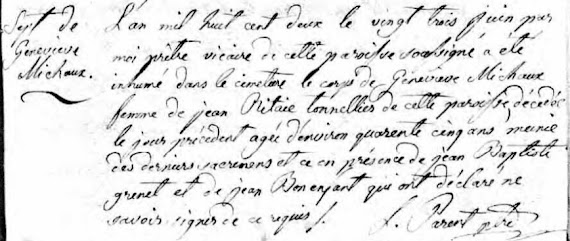 Sept de
Genevieve
Michaux.
L'an mil huit cent deux le vingt trois juin par
moi prêtre vicaire de cette paroisse soussigné a été
inhumé dans le cimetiere le corps de Genevieve Michaux
femme de jean Ritaie tonnellier de cette paroisse décedée
le jour précédent agée d'environ quarente cinq ans munie
des derniers sacremens et ce en présence de jean Baptiste
grenet et de jean Bonenfant qui ont déclaré ne
savoir signer de ce requis /. J. Parent ptre